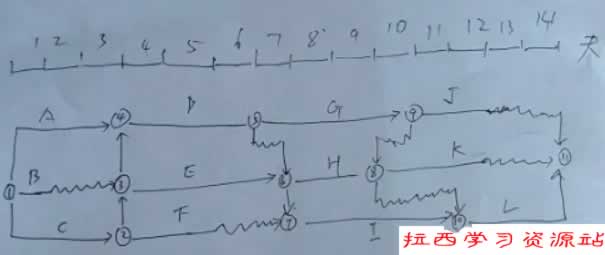 1 2 3 4 5 6 7 8 9 10 11 12 13 14 天
A D G J
④ ⑤ ⑨
B E H K
① ③ ⑥ ⑧ ⑪
C F I L
② ⑦ ⑩
拉西学习资源站